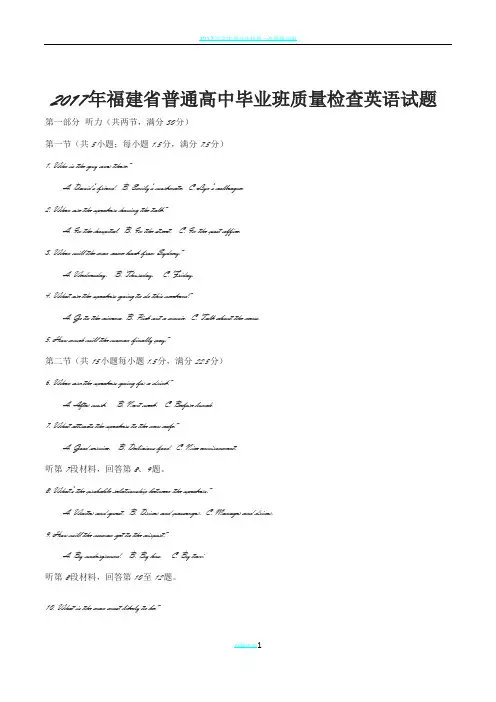 2017年福建省普通高中毕业班质量检查英语试题
第一部分 听力（共两节，满分30分）
第一节（共5小题；每小题1.5分，满分7.5分）
1. Who is the guy over there?
A. David's friend. B. Emily's roommate. C. Liya's colleague.
2. Where are the speakers having the talk?
A. In the hospital. B. In the street. C. In the post office.
3. When will the man come back from Sydney?
A. Wednesday. B. Thursday. C. Friday.
4. What are the speakers going to do this weekend?
A. Go to the cinema. B. Pick out a movie. C. Talk about the news.
5. How much will the woman finally pay?
第二节（共15小题每小题1.5分，满分22.5分）
6. When are the speakers going for a drink?
A. After work. B. Next week. C. Before lunch.
7. What attracts the speakers to the new cafe?
A. Good service. B. Delicious food. C. Nice environment.
听第7段材料，回答第8、9题。
8. What's the probable relationship between the speakers?
A. Waiter and guest. B. Driver and passenger. C. Manager and driver.
9. How will the woman get to the airport?
A. By underground. B. By bus. C. By taxi.
听第8段材料，回答第10至12题。
10. What is the man most likely to be?
1